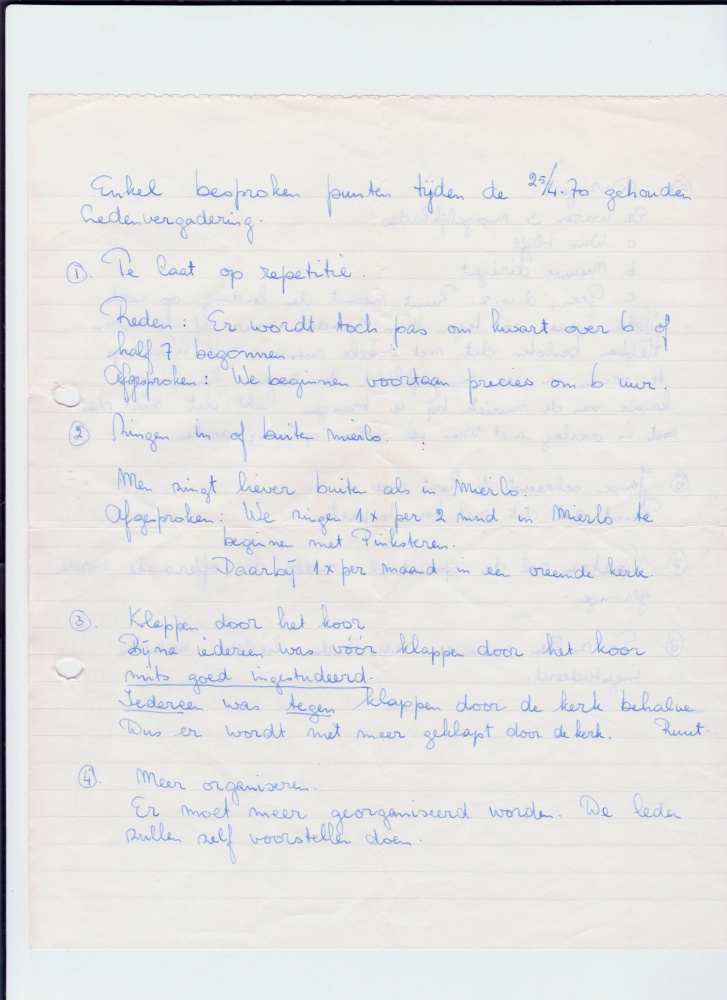 Enkel besproken punten tijden de 25/4.70 gehouden
Ledenvergadering.
①. Te laat op repetitie.
Reden: Er wordt toch pas om kwart over 6 of
half 7 begonnen.
Afgesproken: We beginnen voortaan precies om 6 uur.
② Zingen in of buiten Mierlo.
Men zingt liever buiten als in Mierlo.
Afgesproken: We zingen 1x per 2 mnd in Mierlo te
beginnen met Pinksteren.
Daarbij 1x per maand in een vreemde kerk.
③. Klappen door het koor
Bijna iedereen was vóór klappen door het koor
mits goed ingestudeerd.
Iedereen was tegen klappen door de kerk behalve
Dus er wordt niet meer geklapt door de kerk. Ruut.
④. Meer organiseren.
Er moet meer georganiseerd worden. De leden
zullen zelf voorstellen doen.